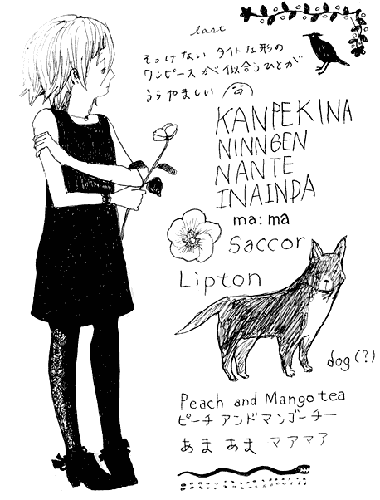 lase
そっけない タイトな形の
ワンピースが似合うひとが
うらやましい
KANPEKINA
NINNGEN
NANTE
INAINDA
ma:ma
Saccor
Lipton
dog(?)
Peach and Mango tea
ピーチ アンド マンゴーチー
あま あま マアマア